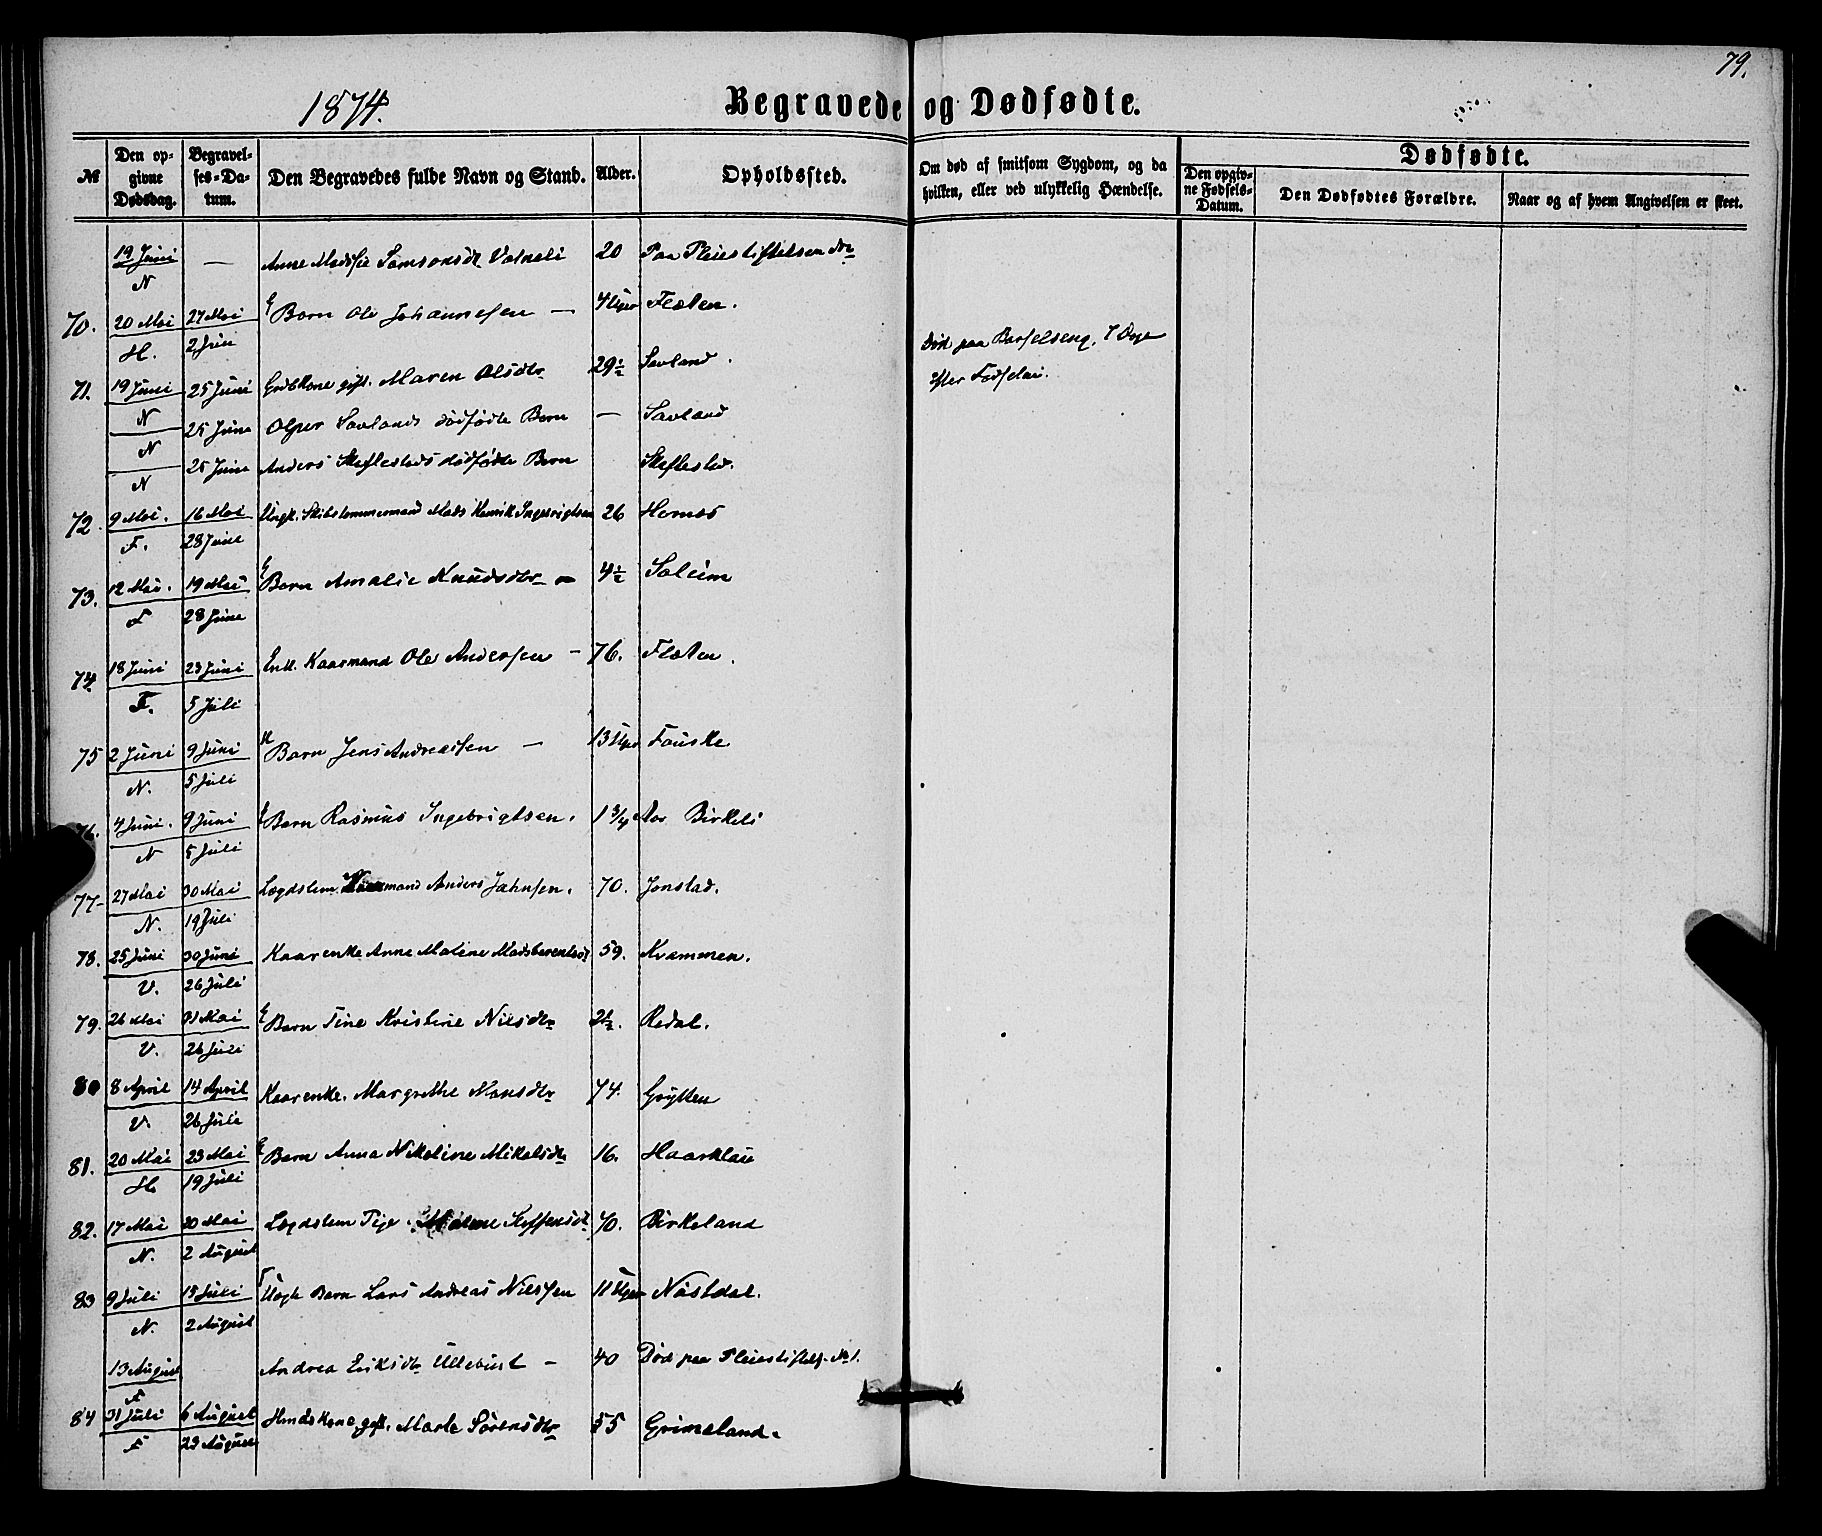 79.
1874.
Begravede og Dødfødte.
№
Den opgivne Dødsdag.
Begravelses-Datum.
Den Begravedes fulde Navn og Stand.
Alder.
Opholdssted.
Om død af smitsom Sygdom, og da hvilken, eller ved ulykkelig Hændelse.
Dødfødte.
Den opgivne Fødsels-Datum.
Den Dødfødtes Forældre.
Naar og af hvem Angivelsen er skeet.
19 Juni N — Anne Madsine Samsonsdtr 20 Paa Pleiestiftelsen
70. 20 Mai H. 27 Mai 2 Juni Barn Ole Johannesen — 4 Uger Flaten.
71. 19 Juni N 25 Juni Grdbkone gift. Maren Olsdtr 29½ Savland. Død paa Barselseng, 7 Dage efter Fødselen.
N 25 Juni Savlands dødfødte Barn — Savland
N 25 Juni Anders dødfødte Barn
72. 9 Mai. F. 16 Mai 28 Juni Ungk. Skibstømmermand Mads Henrik Ingebrigtsen 26 Hornes
73. 12 Mai. F 19 Mai 28 Juni Barn Amalie Knudsdtr — 4½ Soleim
74 18 Juni F. 23 Juni 5 Juli Enk. Kaarmand Ole Andersen — 76. Flaten.
75 2 Juni N. 9 Juni 5 Juli Barn Jens Andreassen — 13 Uger Fauske
76. 4 Juni. N 9 Juni 5 Juli Barn Rasmus Ingebrigtsen. 1¾ Birkeli
77 27 Mai N. 30 Mai 19 Juli Lægdslem Anders Jahnsen. 70. Jonstad.
78. 25 Juni V. 30 Juni 26 Juli Kaarenke Anne Malene Madsberentsdt 59. Kvammen.
79. 26 Mai V. 31 Mai 26 Juli Barn Tine Kristine Nilsdtr 2½. Redal.
80 8 April V. 14 April 26 Juli Kaarenke. Margrethe Monsdtr 74. Grytten
81. 20 Mai H. 23 Mai 19 Juli Barn Anna Nikoline Mikalsdtr 16. Haarklau
82. 17 Mai N. 20 Mai 2 August Lægdslem Pige Malene Steffensdt 70. Birkeland
83 9 Juli N. 13 Juli 2 August Uægte Barn Lars Andreas Nilssen 11 Uger Nåstdal.
13 August F Andrea Eriksdtr Ullebust — 40 Død paa Pleiestiftels. No 1.
84 31 Juli F 6 August 23 August Husdskone gift. Marte Sørensdtr 55 Grimeland.